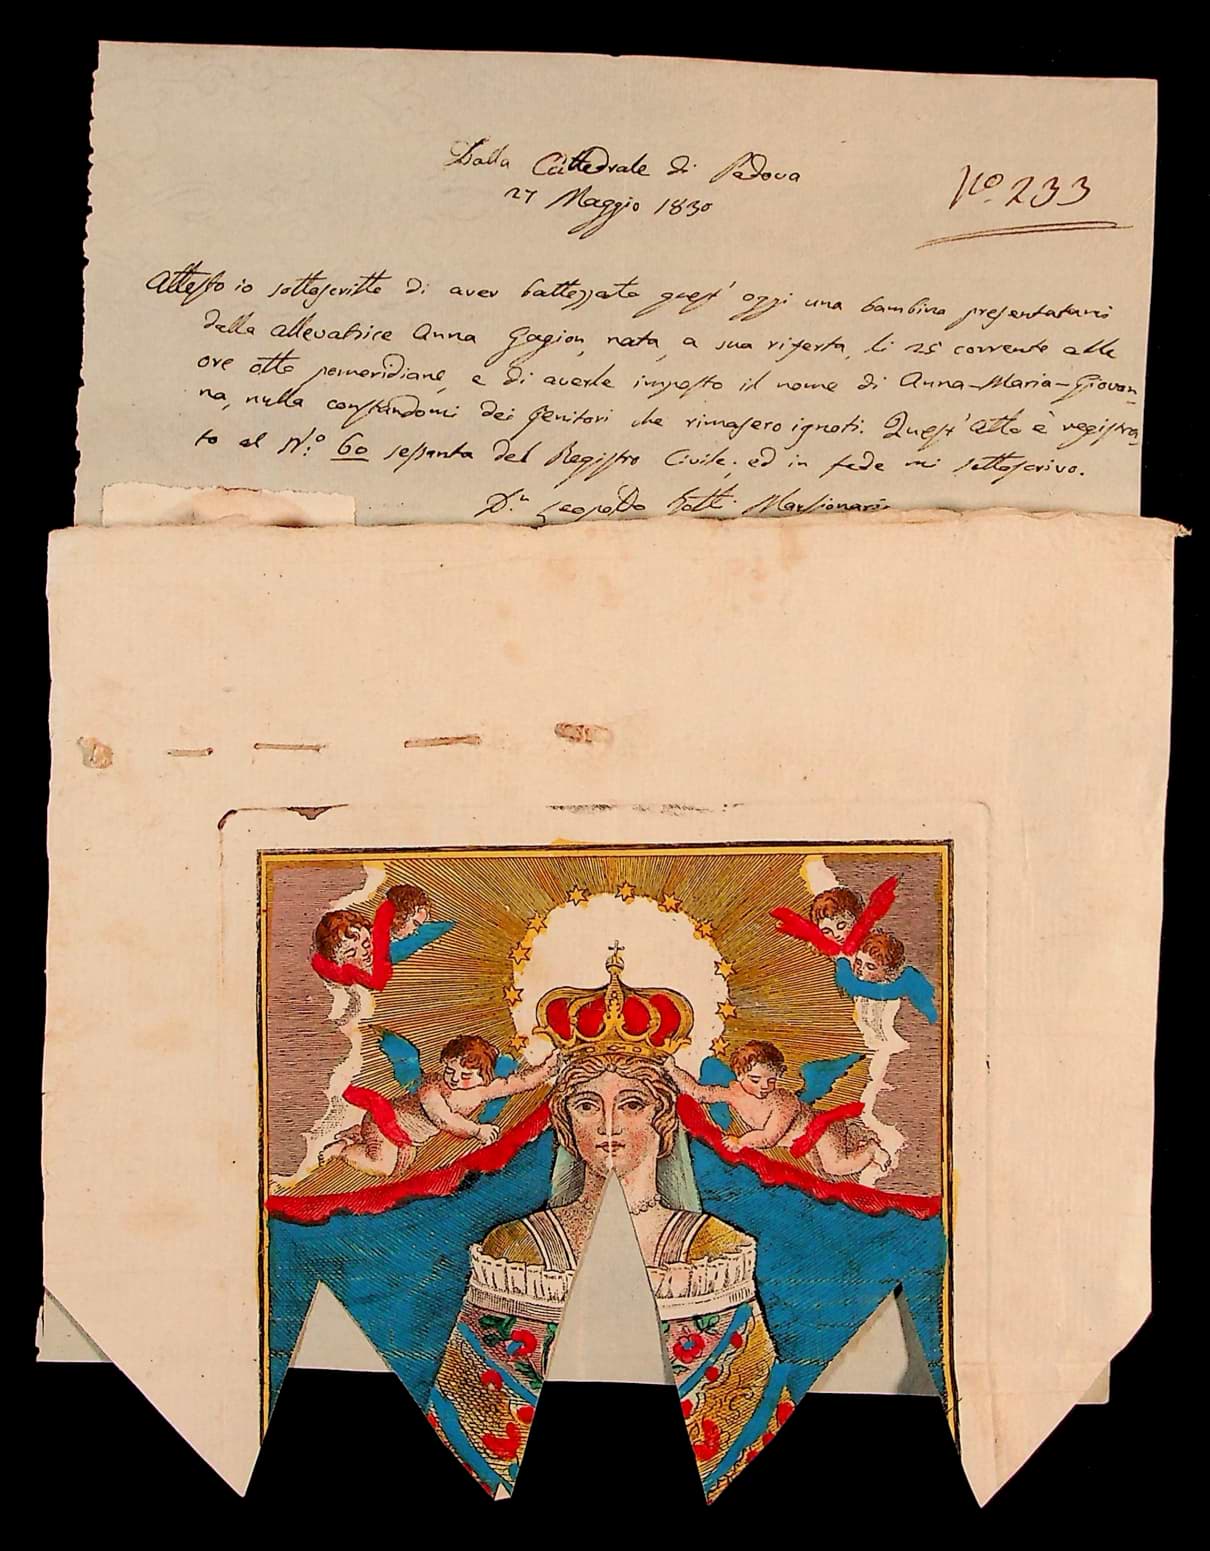 Dalla Cattedrale di Padova
27 Maggio 1830
No. 233
Attesto io sottoscritto di aver battezzata quest' oggi una bambina presentatami
dalla allevatrice Anna Gagion, nata, a sua riferta, li 25 corrente alle
ore otto pomeridiane, e di averle imposto il nome di Anna-Maria-Giovan-
na, nulla constandomi dei Genitori che rimasero ignoti. Quest' atto è registra-
to al No: 60 sessanta del Registro Civile; ed in fede mi sottoscrivo.
D.n Leopoldo Mansionario